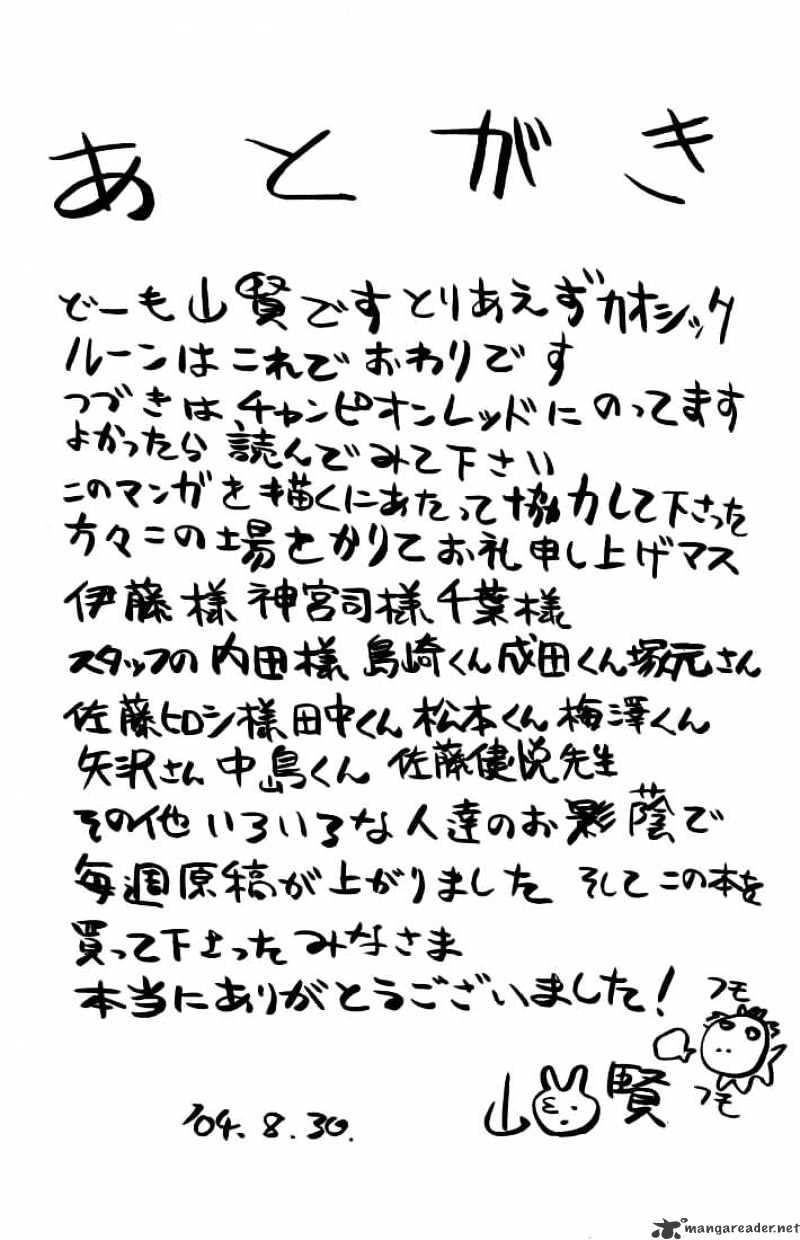 あとがき
どーも山賢ですとりあえずカオシック
ルーンはこれでおわりです
つづきは、チャンピオンレッドにのってます
よかったら読んでみて下さい
このマンガを描くにあたって協力して下さった
方々この場をかりてお礼申し上げマス
伊藤様神宮司様千葉様
スタッフの内田様島崎くん成田くん塚元さん
佐藤ヒロシ様田中くん松本くん梅澤くん
矢沢さん中島くん佐藤健悦先生
その他いろいろな人達のお影蔭で
毎週原稿が上がりました そしてこの本を
買って下さったみなさま
本当にありがとうございました!
フモ
フモ
山賢
'04.8.30.
mangareader.net